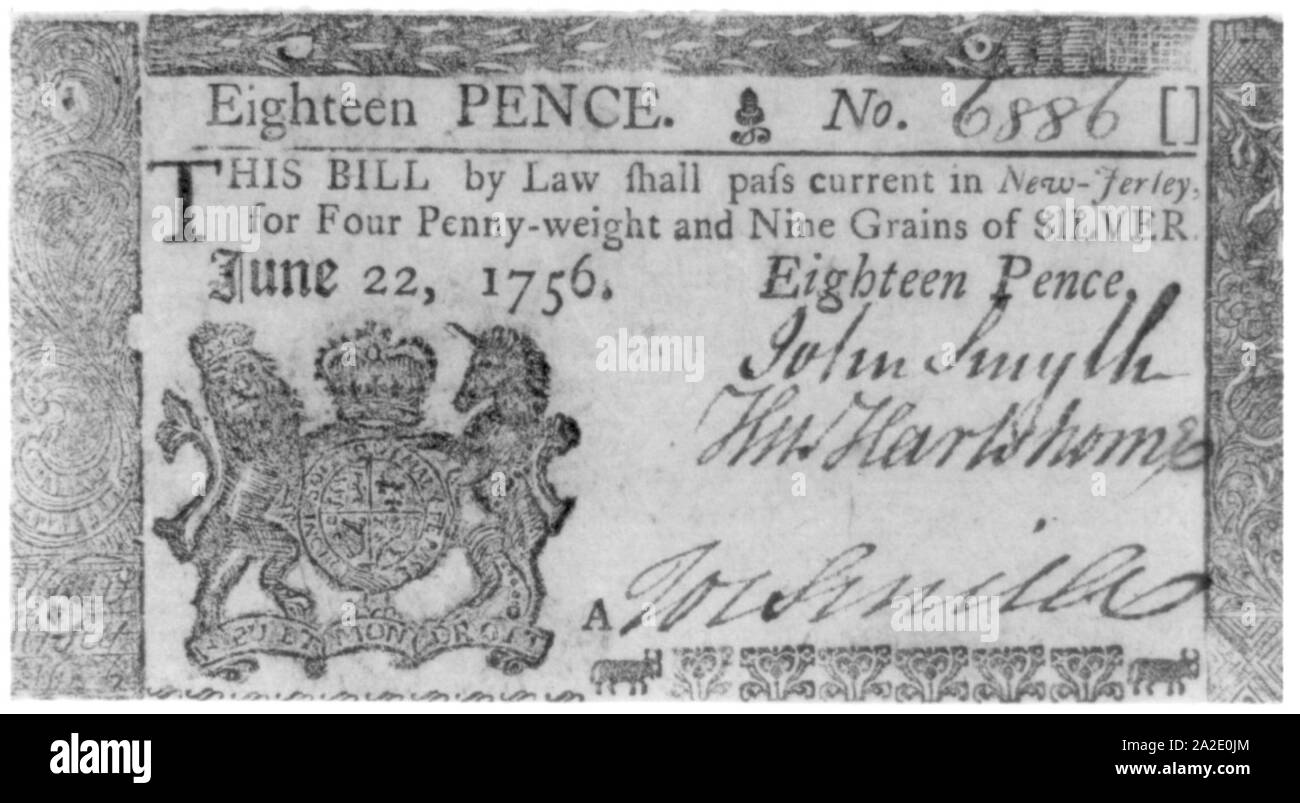 Eighteen PENCE. No. 6886 []
THIS BILL by Law ſhall paſs current in New-Jerſey,
for Four Penny-weight and Nine Grains of SILVER.
June 22, 1756. Eighteen Pence.
John Smyth
Hartshorne
ET MON DROIT
A
alamy
alamy
Image ID: A2E0JM
www.alamy.com